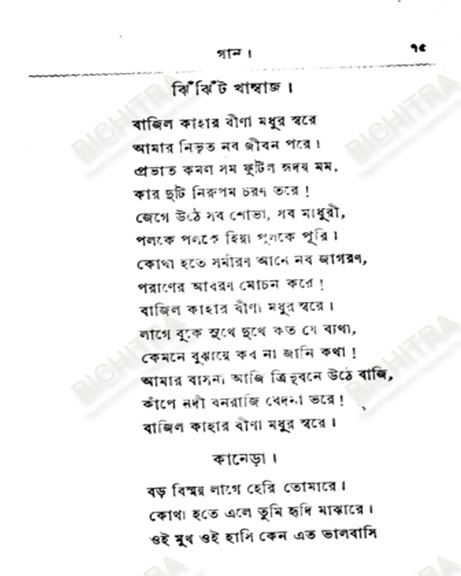 গান।
১৫
ঝিঁঝিঁট খাম্বাজ।
বাজিল কাহার বীণা মধুর স্বরে
আমার নিভৃত নব জীবন পরে।
প্রভাত কমল সম ফুটিল হৃদয় মম,
কার ছুটি নিরুপম চরণ তরে!
জেগে উঠে সব শোভা, সব মাধুরী,
পলকে পলকে হিয়া পুলকে পূরি।
কোথা হতে সমীরণ আনে নব জাগরণ,
পরাণের আবরণ মোচন করে!
বাজিল কাহার বীণা মধুর স্বরে।
লাগে বুকে সুখে দুখে কত যে ব্যথা,
কেমনে বুঝায়ে কব না জানি কথা!
আমার বাসনা আজি ত্রিভুবনে উঠে বাজি,
কাঁপে নদী বনরাজি বেদনা ভরে!
বাজিল কাহার বীণা মধুর স্বরে।
কানেড়া।
বড় বিস্ময় লাগে হেরি তোমারে।
কোথা হতে এলে তুমি হৃদি মাঝারে।
ওই মুখ ওই হাসি কেন এত ভালবাসি
BICHITRA
BICHITRA
BICHITRA
BICHITRA